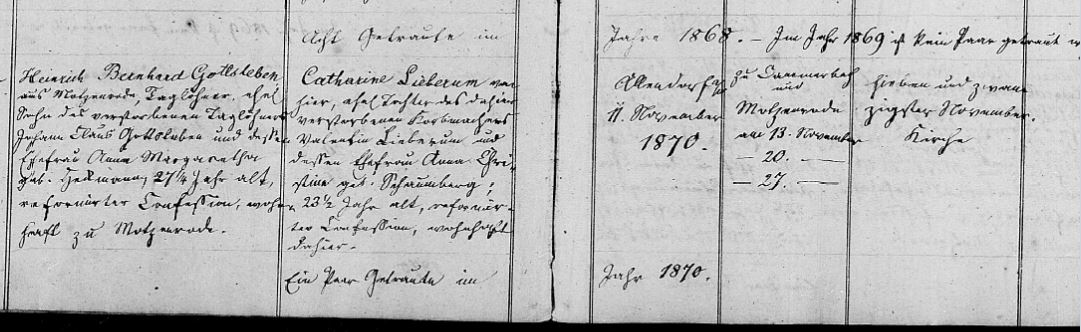 Acht Getraute im Jahre 1868. – Im Jahr 1869 ist kein Paar getraut
Heinrich Bernhard Gottsleben
aus Motzenrode, Taglöhner, ehel
Sohn des verstorbenen Taglöhners
Johann Claus Gottsleben und dessen
Ehefrau Anna Margaretha
geb. Hekmann, 27¼ Jahr alt,
reformirter Confession, wohn-
haft zu Motzenrode.
Catharine Lieberum von
hier, ehel Tochter des dahier
verstorbenen Korbmachers
Valentin Lieberum und
dessen Ehefrau Anna Chri-
stine geb. Schaumberg;
23½ Jahr alt, reformir-
ter Confession, wohnhaft
dahier.
Allendorf
11. November
1870.
zu Cammerbach
und
Motzenrode
am 13. November
— 20. —
— 27. —
sieben und zwan
zigster November.
Kirche
Ein Paar Getraute im Jahr 1870.